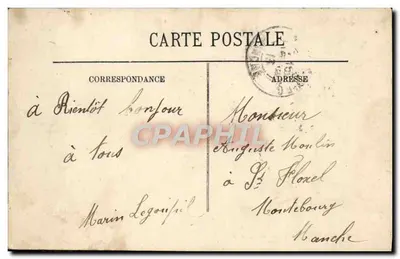 CARTE POSTALE
CORRESPONDANCE
ADRESSE
à Bientôt bonjour
à tous
Marin Legoupil
Monsieur
Auguste Moulin
à St Floxel
Montebourg
Manche
CPARAMA